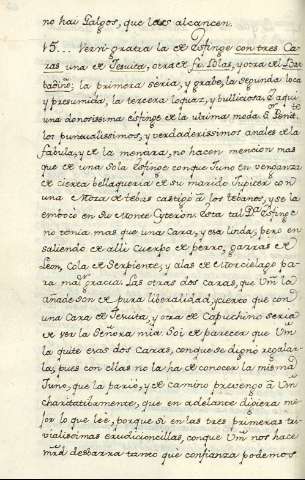 no hai Galgos, que las alcancen.
15... Vervi gratia la de Esfinge con tres Ca-
ras una de Jesuita, otra de fr. Blas, y otra de Bar-
badiño; la primera séria, y grabe, la segunda loca
y presumida, la tercera loquaz, y bulliciosa. I aqui
una donosissima esfinge de la ultima moda.
los puntualissimos, y verdaderissimos anales de la
fabula, y de la mentira, no hacen mencion mas
que de una sola Esfinge conque Juno en venganza
de cierta bellaqueria de su marido Jupiter con
una Moza de tebas castigò à los tebanos, y se la
embocò en su Monte Cyteròn. Esta tal Dª Esfinge
no tenia mas que una Cara, y esa linda; pero en
saliendo de alli Cuerpo de perro, garras de
Leon, Cola de Serpiente; y alas de Morcielago pa-
ra maior gracia. Las otras dos caras, que Vm la
añade son de pura liberalidad; y cierto que con
una Cara de Jesuita, y otra de Capuchino seria
de ver la Señora mia. Soi de parecer que Vm
la quite esas dos Caras, conque se digno regalar-
la; pues con ellas no la ha de conocer la misma
Juno, que la pariò; y de camino prevengo à Vm
charitatibamente, que en adelante digiera me-
jor lo que lee, porque si en las tres primeras tri-
vialissimas erudicioncillas, conque Vm nos hace
mrd desbarra tanto que confianza podemos